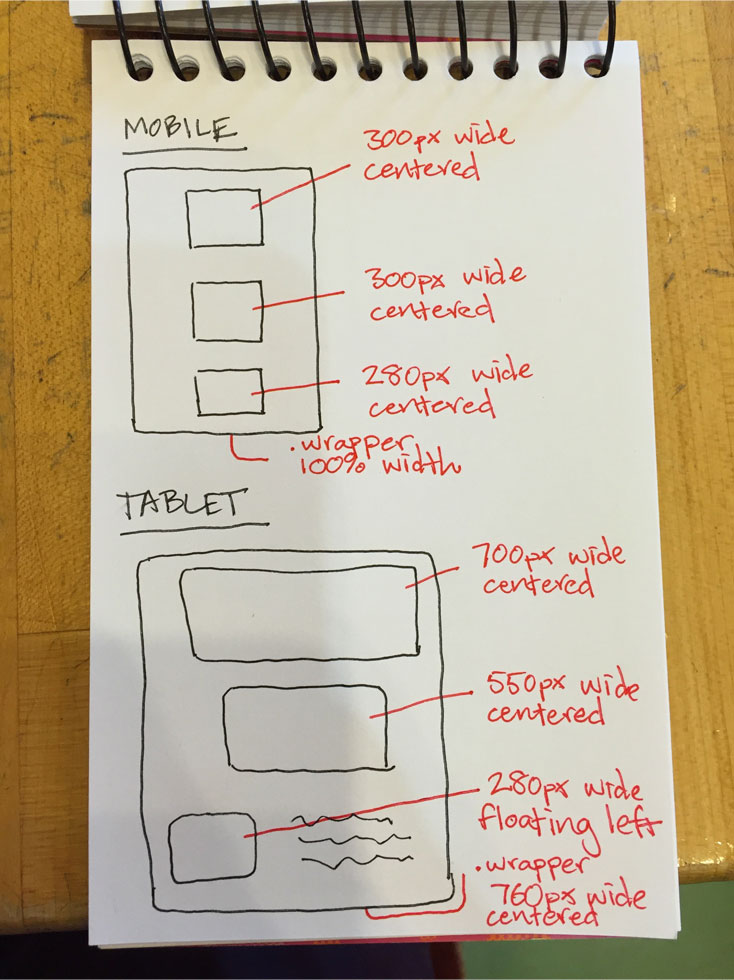 MOBILE
300px wide
centered
300px wide
centered
280px wide
centered
.wrapper
100% width
TABLET
700px wide
centered
550px wide
centered
280px wide
floating left
.wrapper
760px wide
centered